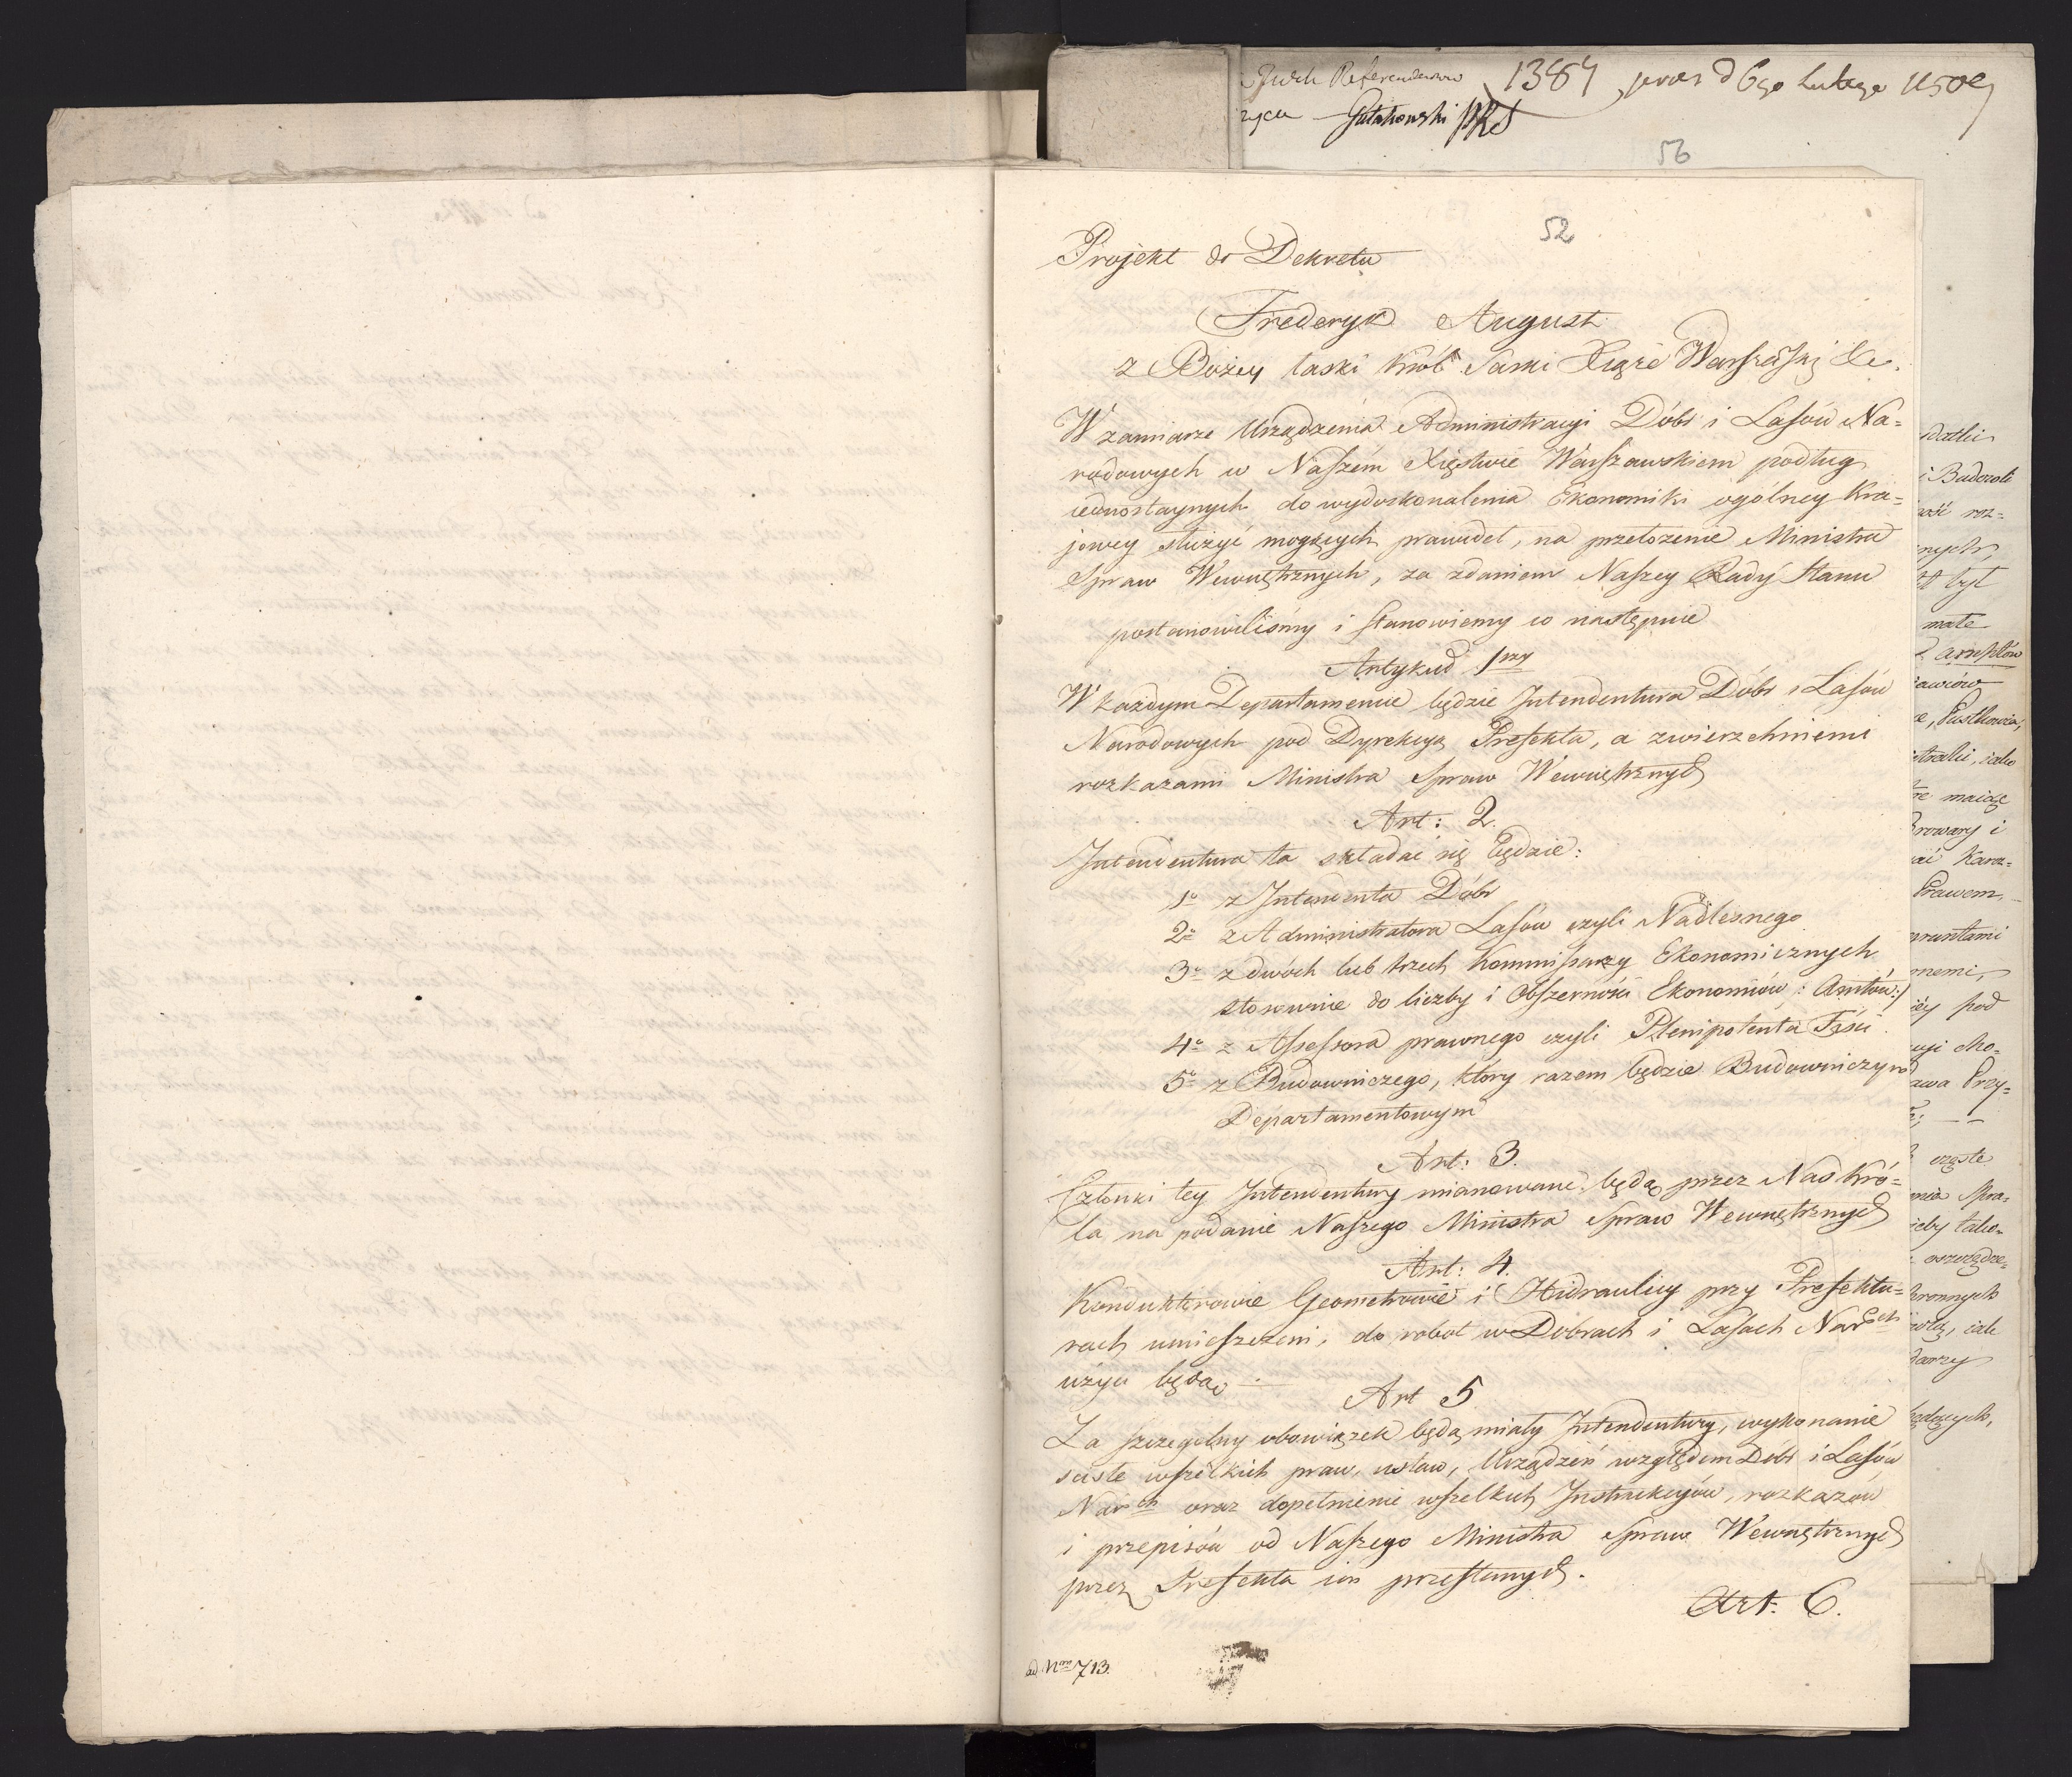 1384 praes d 6go Lutego 1809
Gutakowski PRS
56
52
Projekt do Dekretu
Frederyk August
z Bożey łaski Król Saski Xiąże Warszawski &c.
W zamiarze Urządzenia Administracyi Dóbr i Lasów Na=
rodowych w Naszém Xięstwie Warszawskiem podług
iednostaynych do wydoskonalenia Ekonomiki ogólney Kra=
jowey służyć mogących prawideł, na przełożenie Ministra
Spraw Wewnętrznych, za zdaniem Naszey Rady Stanu
postanowiliśmy i stanowiemy co następuie
Artykuł 1szy
W każdym Departamencie będzie Intendentura Dóbr i Lasów
Narodowych pod Dyrekcyą Prefekta, a zwierzchniemi
rozkazami Ministra Spraw Wewnętrznych
Art: 2.
Intendentura ta składać się będzie:
1o z Intendenta Dóbr
2o z Administratora Lasów czyli Nadleśnego
3o z dwóch lub trzech Kommissarzy Ekonomicznych
stosownie do liczby i obszerności Ekonomiów /: Amtów :/
4o z Assessora prawnego czyli Plenipotenta
5o z Budowniczego, który razem będzie Budowniczym
Departamentowym
Art: 3.
Członki tey Intendentury mianowane będą przez Nas Kró=
la na podanie Naszego Ministra Spraw Wewnętrznych
Art: 4.
Konduktorowie Geometrowie i Hidraulicy przy Prefektu=
rach umieszczeni, do robot w Dobrach i Lasach Narch
użyci będą.
Art 5
Za szczególny obowiązek będą miały Intendentury, wykonanie
ścisłe wszelkich praw, ustaw, Urządzeń względem Dóbr i Lasów
Narch oraz dopełnienie wszelkich Instrukcyów, rozkazów
i przepisów od Naszego Ministra Spraw Wewnętrznych
przez Prefekta im przesłanych.
Art: 6.
ad Nrm 713.